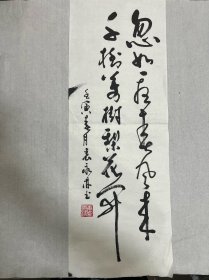 忽如一夜春风来
千树万树梨花开
壬寅春月袁永琪书